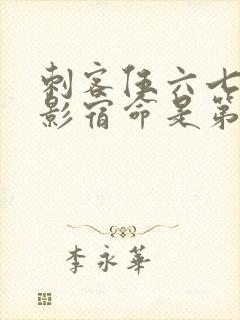 刺客伍六七
影宿命是第
李永華